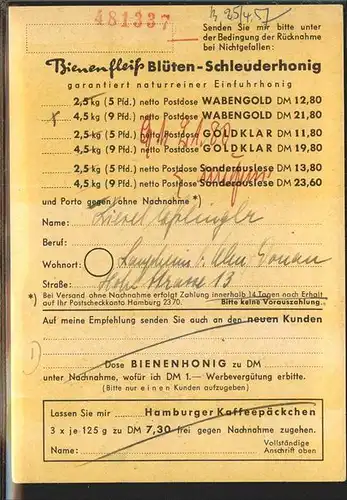 481337
Senden Sie mir bitte unter
der Bedingung der Rücknahme
bei Nichtgefallen:
Bienenfleiß Blüten-Schleuderhonig
garantiert naturreiner Einfuhrhonig
2,5 kg (5 Pfd.) netto Postdose WABENGOLD DM 12,80
x 4,5 kg (9 Pfd.) netto Postdose WABENGOLD DM 21,80
2,5 kg (5 Pfd.) netto Postdose GOLDKLAR DM 11,80
4,5 kg (9 Pfd.) netto Postdose GOLDKLAR DM 19,80
2,5 kg (5 Pfd.) netto Postdose Sonderauslese DM 13,80
4,5 kg (9 Pfd.) netto Postdose Sonderauslese DM 23,60
und Porto gegen/ohne Nachnahme *)
Name:
Beruf:
Wohnort: Ulm Donau
Straße: Strasse 13
*) Bei Versand ohne Nachnahme erfolgt Zahlung innerhalb 14 Tagen nach Erhalt
auf Ihr Postscheckkonto Hamburg 2370. Bitte keine Vorauszahlung.
Auf meine Empfehlung senden Sie auch an den neuen Kunden
1)
Dose BIENENHONIG zu DM
unter Nachnahme, wofür ich DM 1.— Werbevergütung erbitte.
(Bitte nur einen Kunden aufzugeben)
Lassen Sie mir Hamburger Kaffeepäckchen
3 x je 125 g zu DM 7,30 frei gegen Nachnahme zugehen.
Name: Vollständige
Anschrift oben